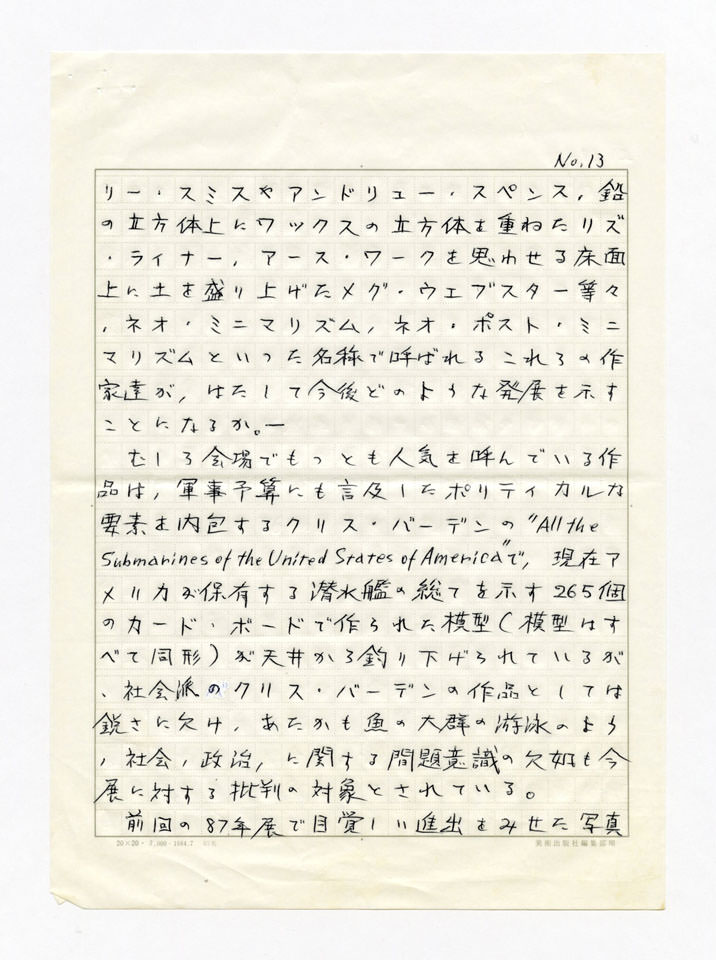 No.13
リー・スミスやアンドリュー・スペンス, 鉛
の立方体上にワックスの立方体を重ねたリズ
・ライナー, アース・ワークを思わせる床面
上に土を盛り上げたメグ・ウェブスター等々
, ネオ・ミニマリズム, ネオ・ポスト・ミニ
マリズムといった名称で呼ばれるこれらの作
家達が, はたして今後どのような発展を示す
ことになるか。ー
むしろ会場でもっとも人気を呼んでいる作
品は, 軍事予算にも言及したポリティカルな
要素を内包するクリス・バーデンの"All the
Submarines of the United States of America"で, 現在ア
メリカが保有する潜水艦の総てを示す265個
のカード・ボードで作られた模型(模型はす
べて同形)が天井から釣り下げられているが
、社会派のクリス・バーデンの作品としては
鋭さに欠け, あたかも魚の大群の游泳のよう
, 社会, 政治, に関する問題意識の欠如も今
展に対する批判の対象とされている。
前回の87年展で目覚しい進出をみせた写真
20×20・7,000・1984.7
美術出版社編集部用